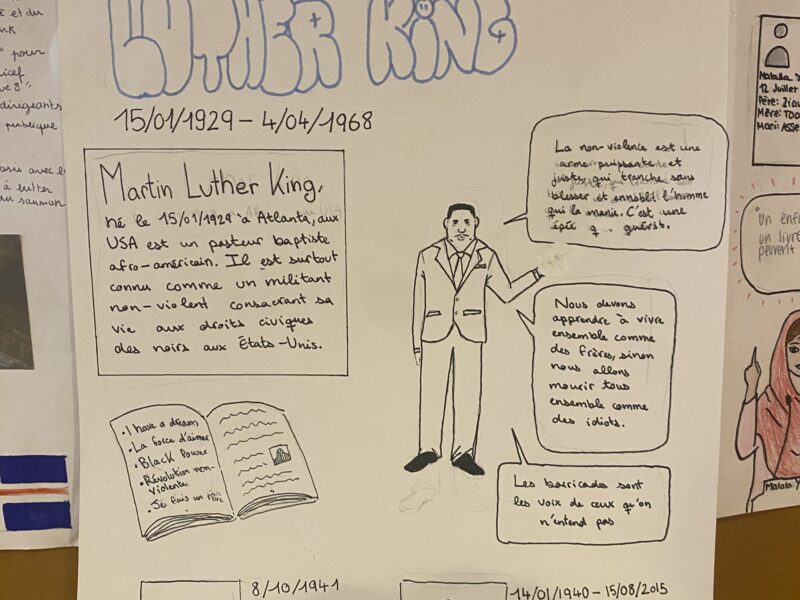 LUTHER KING
15/01/1929 – 4/04/1968
Martin Luther King,
né le 15/01/1929 à Atlanta, aux
USA est un pasteur baptiste
afro-américain. Il est surtout
connu comme un militant
non-violent consacrant sa
vie aux droits civiques
des noirs aux États-Unis.
La non-violence est une
arme puissante et
juste, qui tranche sans
blesser et ennoblit l'homme
qui la manie. C'est une
épée q guérit.
Nous devons
apprendre à vivre
ensemble comme
des frères, sinon
nous allons
mourir tous
ensemble comme
des idiots.
Les barricades sont
les voix de ceux qu'on
n'entend pas
• I have a dream
• La force d'aimer
• Black Power
• Révolution non-
violente
• Je fais un rêve
8/10/1941
14/01/1940 – 15/08/2015
et du
" pour
dirigeants
publique
avec l
à lutter
un saumon
Malala
12 Juillet
Père: Ziau
Mère: Too
Mari: Asse
"Un enf
un livr
peuvent
Malala Y